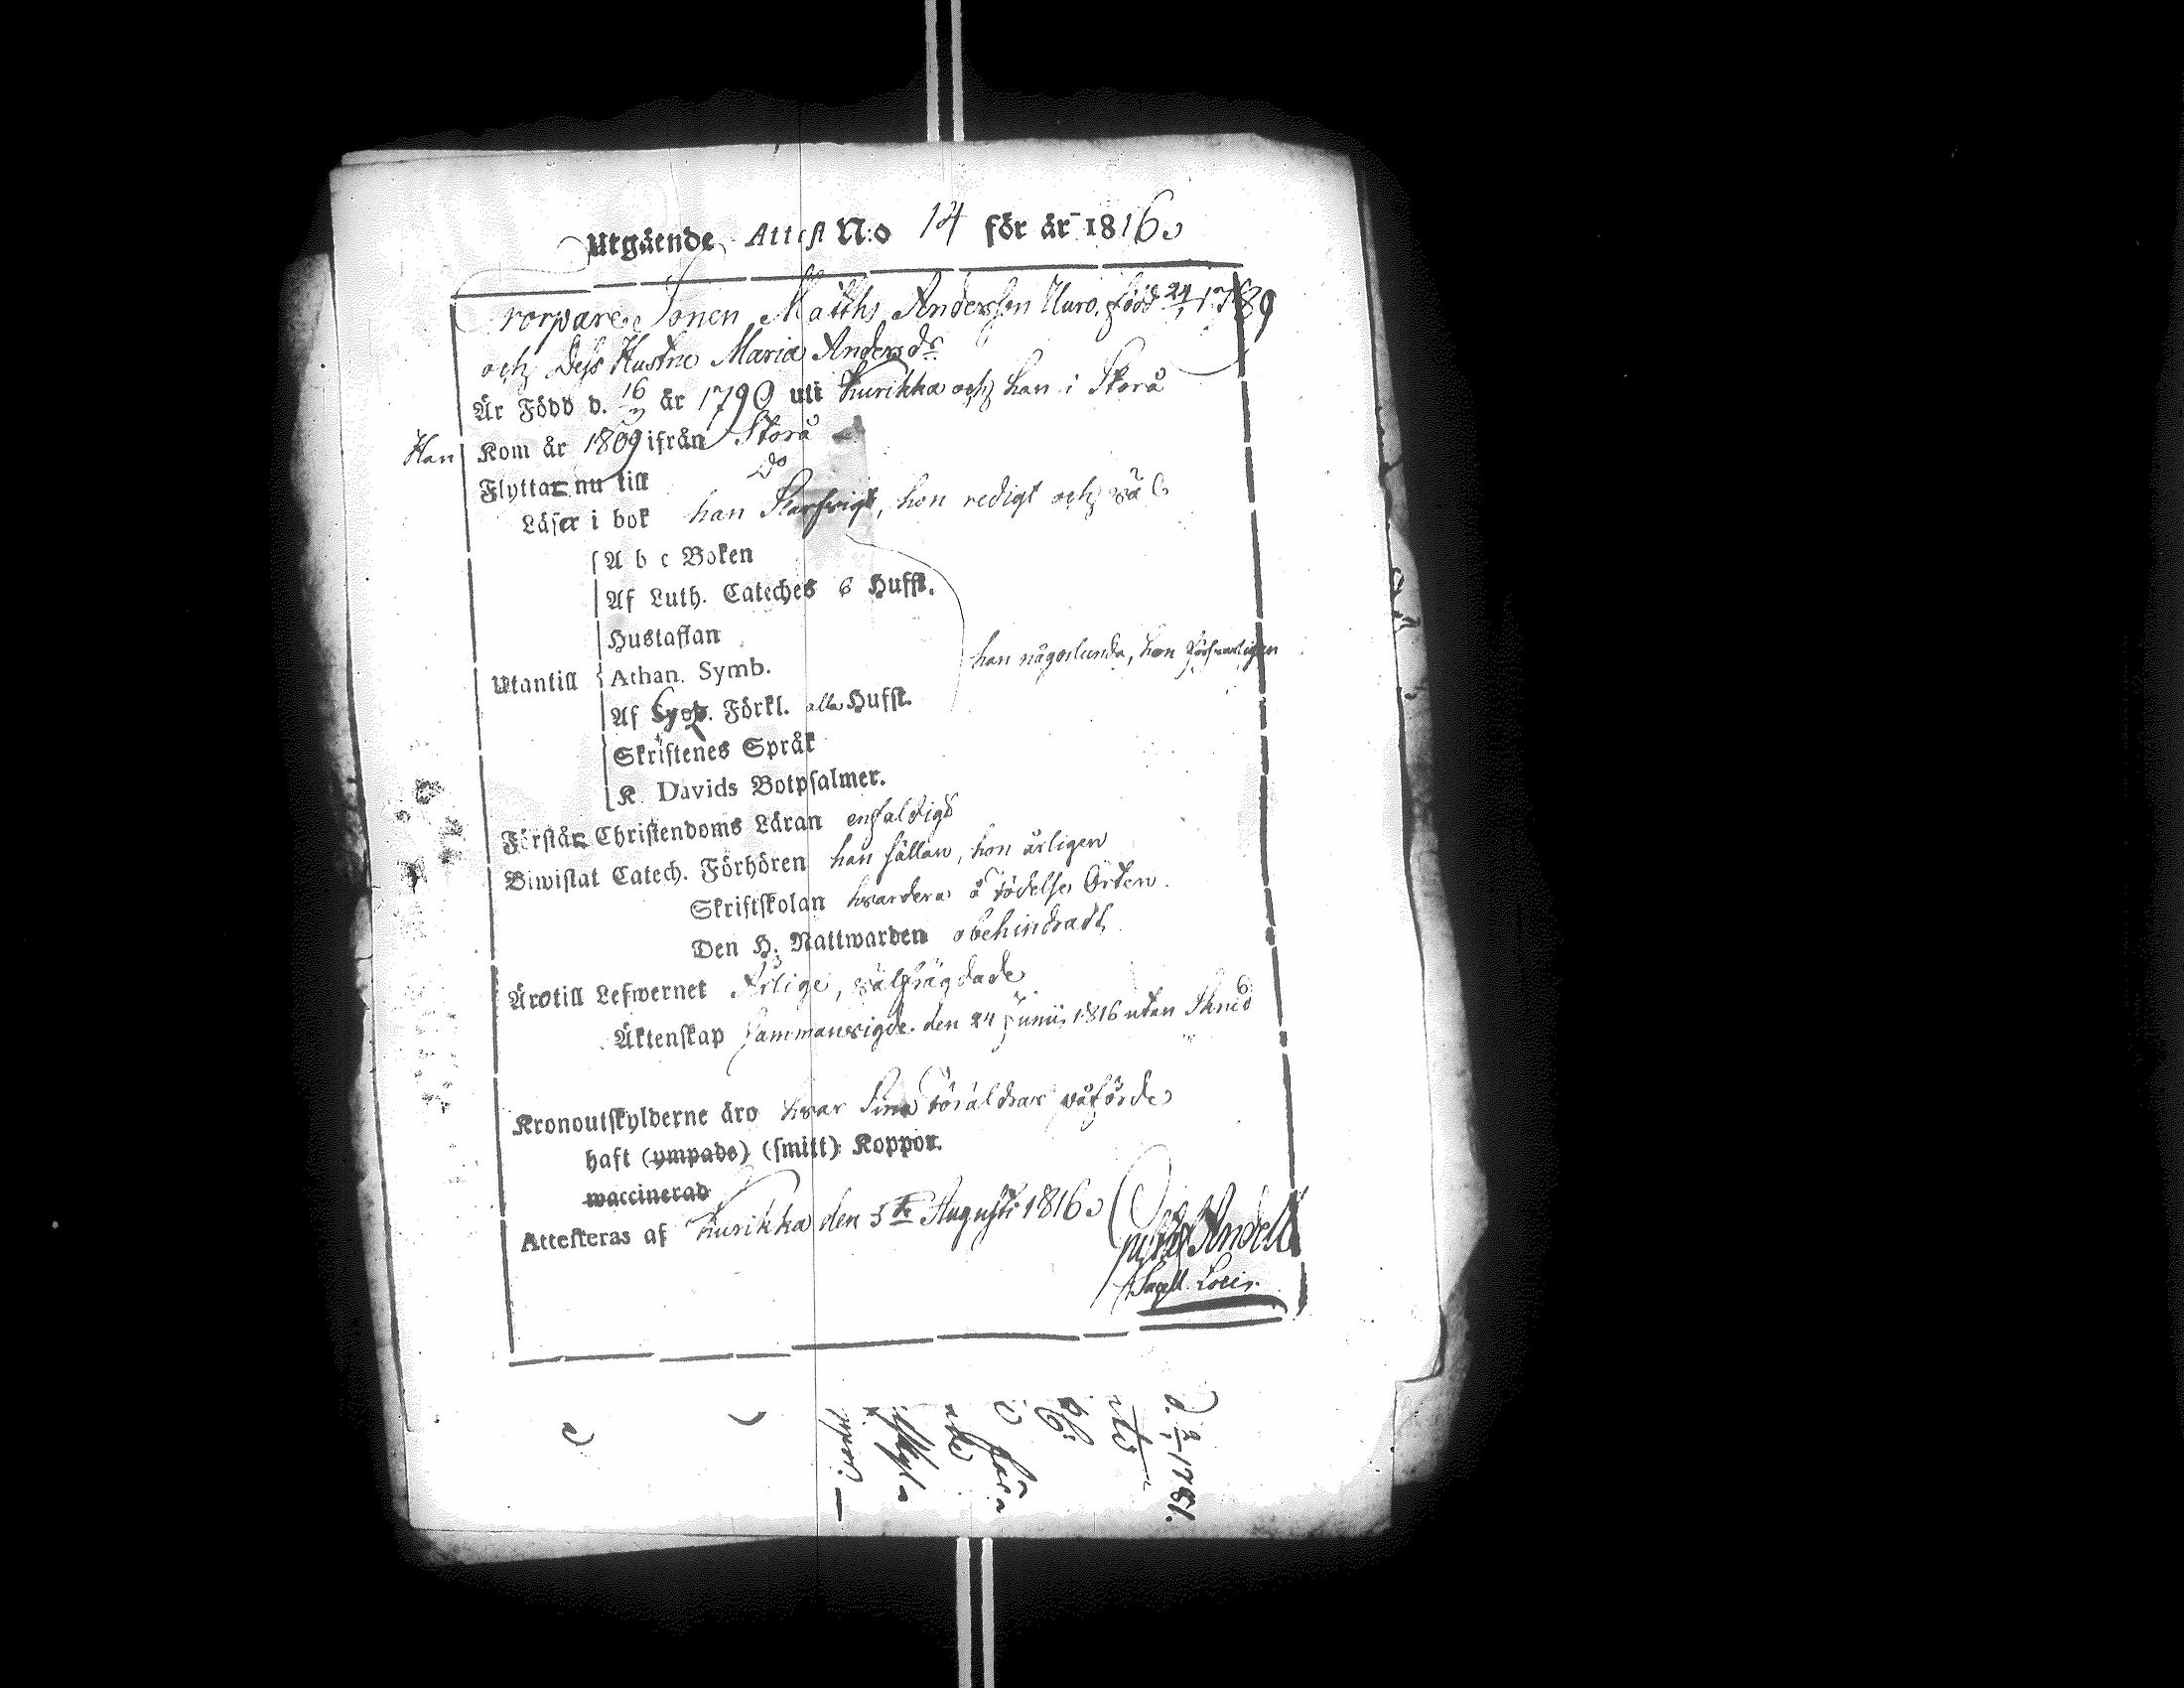 Utgående Attest N:o 14 för år 1816.
Torpare Sonen Matths Andersson Uuro, född 24/1 1789
och Dess Hustru Maria Andersdr
Är Född d. 16 år 1790 uti Kurikka och han i Storå
Han Kom år 1809 ifrån Storå
Flyttar nu till do
Läser i bok han Starfvigt, hon redigt och väl
A b c Boken
Af Luth. Cateches 6 Hufst.
Hustaflan
han någorlunda, hon försvarligen
Utantill Athan. Symb.
Af Förkl. alla Hufst.
Skriftenes Språk
K. Davids Botpsalmer.
Förstår Christendoms Läran enfaldigt
Biwistat Catech. Förhören han sällan, hon årligen
Skriftskolan hvardera å födelse Orten.
Den H. Nattwarden obehindradt
Äro till Lefwernet Ärlige, välfrägdade
Äktenskap Sammanvigde den 24 Junii 1816 utan
Kronoutskylderne äro hvar Sina föräldrar påförde
haft (ympade) (smitt) Koppor.
waccinerad
Attesteras af Kurikka den 5te Augusti 1816
Andell
Sacell. Loci.
1781.